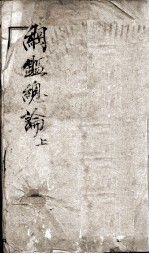 綱鑑總論上